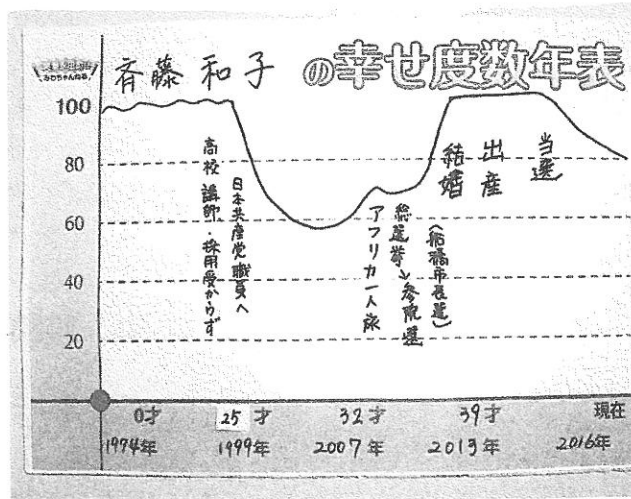 みわちゃんねる
斉藤 和子 の幸せ度数年表
100
80
60
40
20
高校講師・採用受からず
日本共産党職員へ
アフリカ一人旅
総選挙→参院選
(船橋市長選)
結婚
出産
当選
0才 25才 32才 39才 現在
1974年 1999年 2007年 2013年 2016年